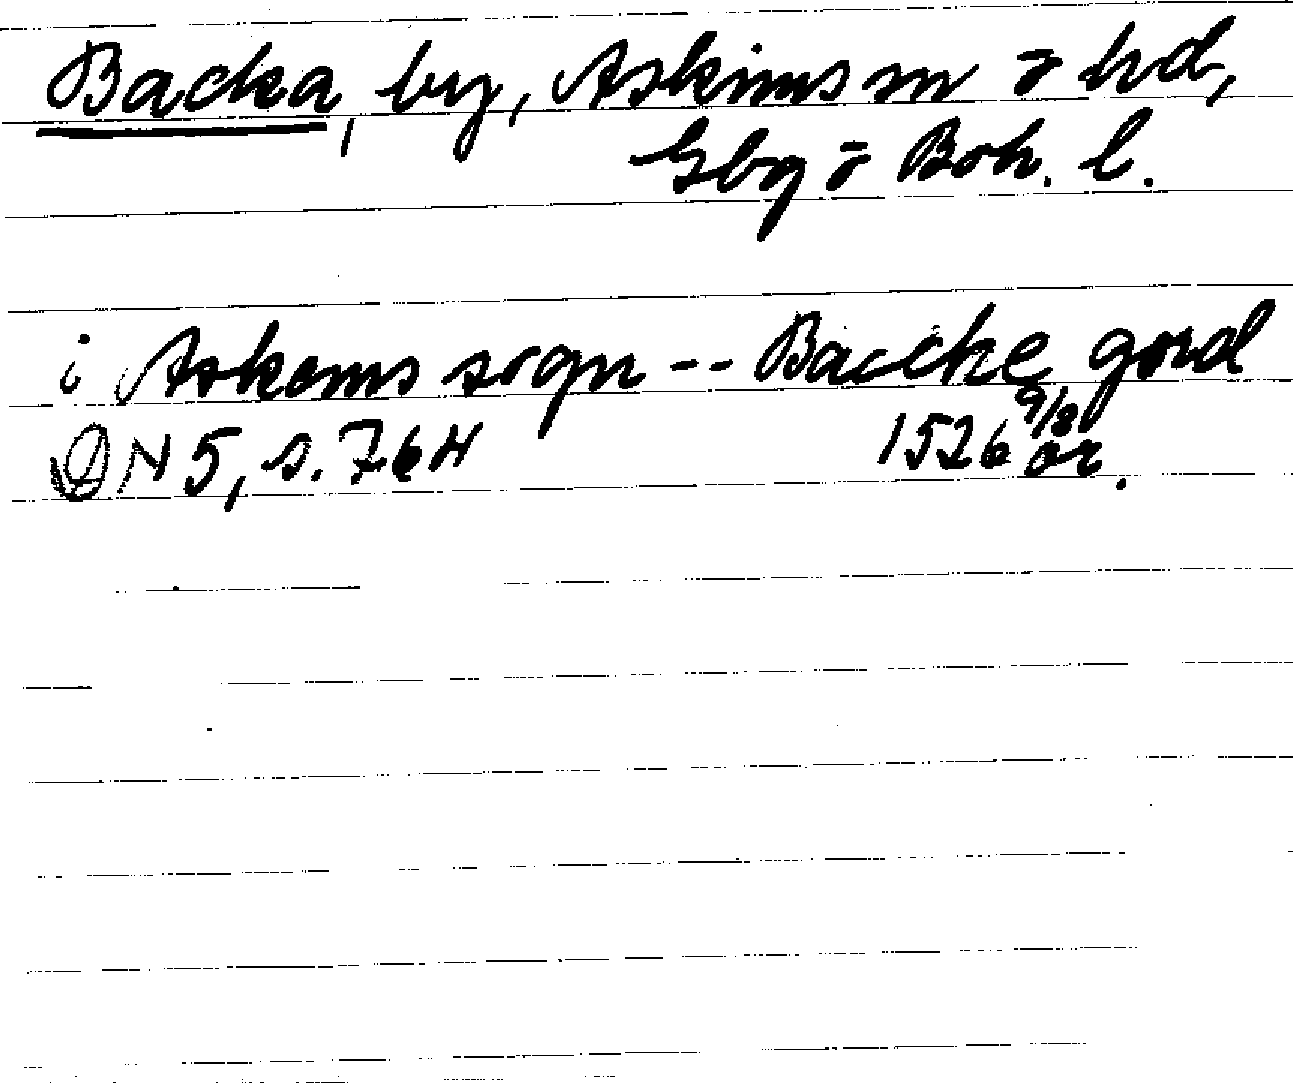 Backa, by, Askims sn o hd,
Gbg o Boh. l.
i Askems sogn -- Baccke gord
DN 5, s. 764 1526 9/8 or.